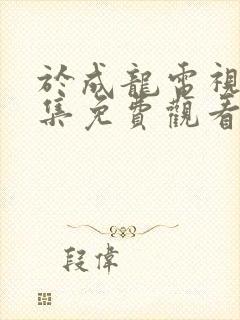 於成龍電視
集免費觀看
段偉